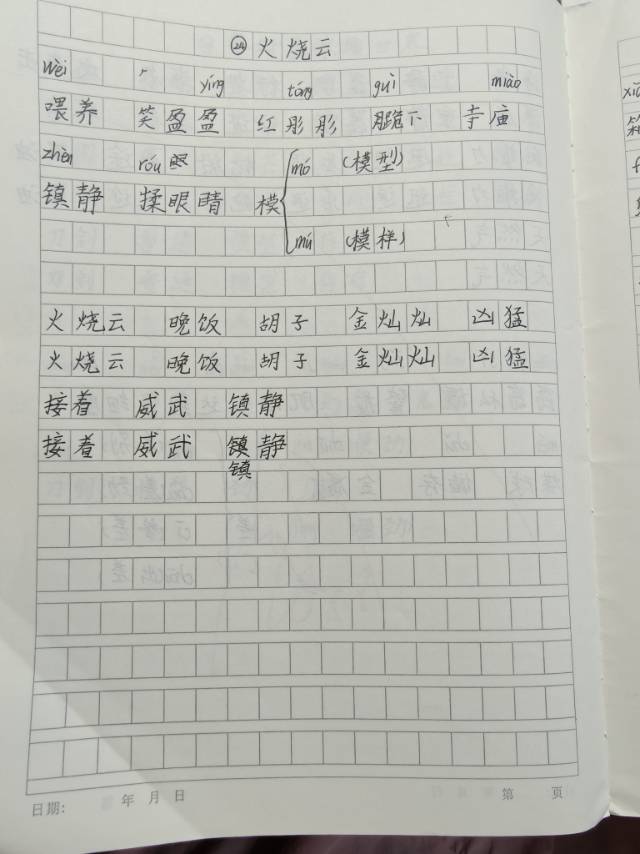 ㉔火烧云
wèi yíng tóng guì miào
喂养 笑盈盈 红彤彤 跪下 寺庙
zhèn róu 眼 mó (模型)
镇静 揉眼睛 模
mú (模样)
火烧云 晚饭 胡子 金灿灿 凶猛
火烧云 晚饭 胡子 金灿灿 凶猛
接着 威武 镇静
接着 威武 镇静
镇
日期: 年 月 日 第 页